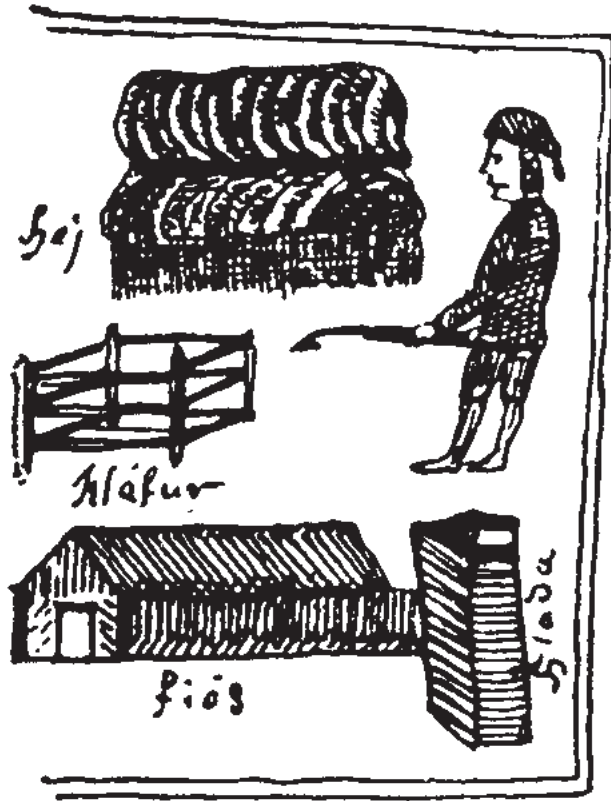 Hej
Kláfur
fiós
Hlada